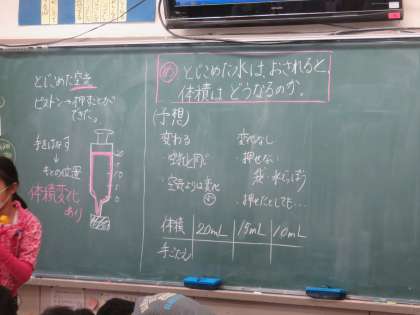 とじこめた空気
ピストン→押すことが
できた。
手をはなす
↓
もとの位置
体積変化
あり
問 とじこめた水は、おされると、
体積は どうなるのか。
(予想)
変わる
・空気と同じ
・空気よりは変化
小
変化なし
・押せない
袋・水でっぽう
・押せたとしても…
体積 20mL 15mL 10mL
手ごたえ